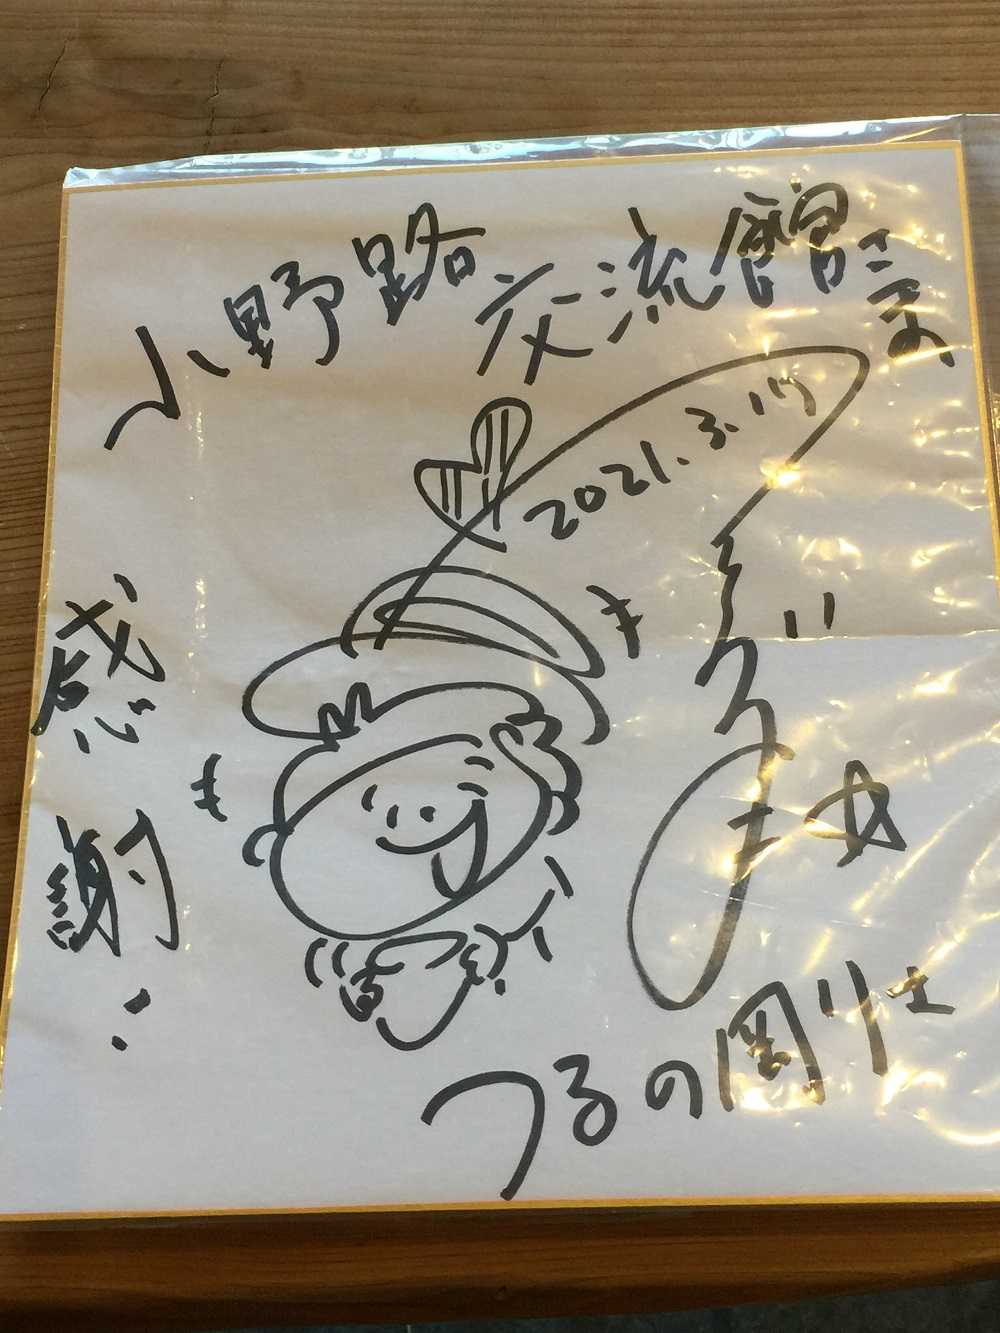 小野路交流館さまへ
2021.3.17
感謝！
つるの剛士